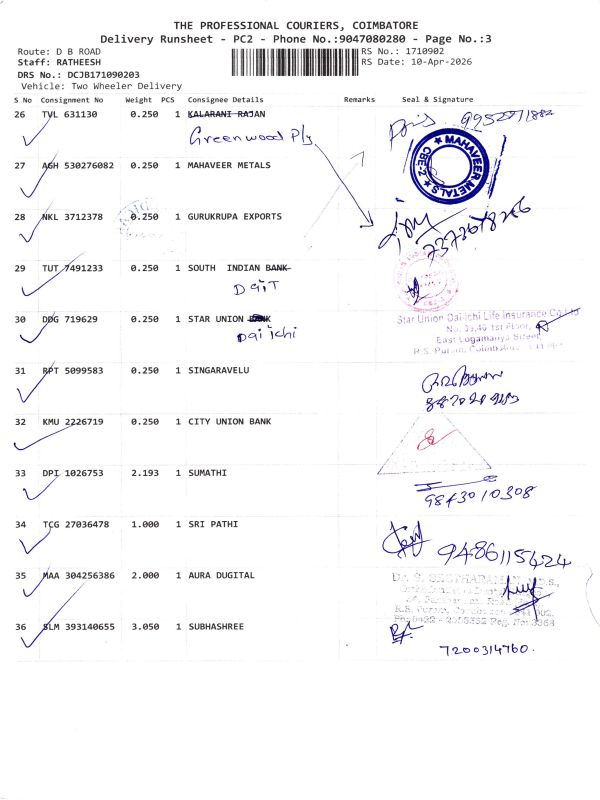 THE PROFESSIONAL COURIERS, COIMBATORE
Delivery Runsheet - PC2 - Phone No.:9047080280 - Page No.:3
Route: D B ROAD RS No.: 1710902
Staff: RATHEESH RS Date: 10-Apr-2026
DRS No.: DCJB171090203
Vehicle: Two Wheeler Delivery
S No Consignment No Weight PCS Consignee Details Remarks Seal & Signature
26 TVL 631130 0.250 1 KALARANI RAJAN
Greenwood Ply
27 AGH 530276082 0.250 1 MAHAVEER METALS
MAHAVEER METALS
CBE-2
28 NKL 3712378 0.250 1 GURUKRUPA EXPORTS
29 TUT 7491233 0.250 1 SOUTH INDIAN BANK
30 DDG 719629 0.250 1 STAR UNION
Dai ichi
Star Union Dai-ichi Life Insurance Co Ltd
1st Floor,
East Logamanya Street,
R.S. Puram,
31 RPT 5099583 0.250 1 SINGARAVELU
32 KMU 2226719 0.250 1 CITY UNION BANK
33 DPI 1026753 2.193 1 SUMATHI
9843010308
34 TCG 27036478 1.000 1 SRI PATHI
9486115424
35 MAA 304256386 2.000 1 AURA DUGITAL
R.S. Puram,
36 SLM 393140655 3.050 1 SUBHASHREE
7200314760.